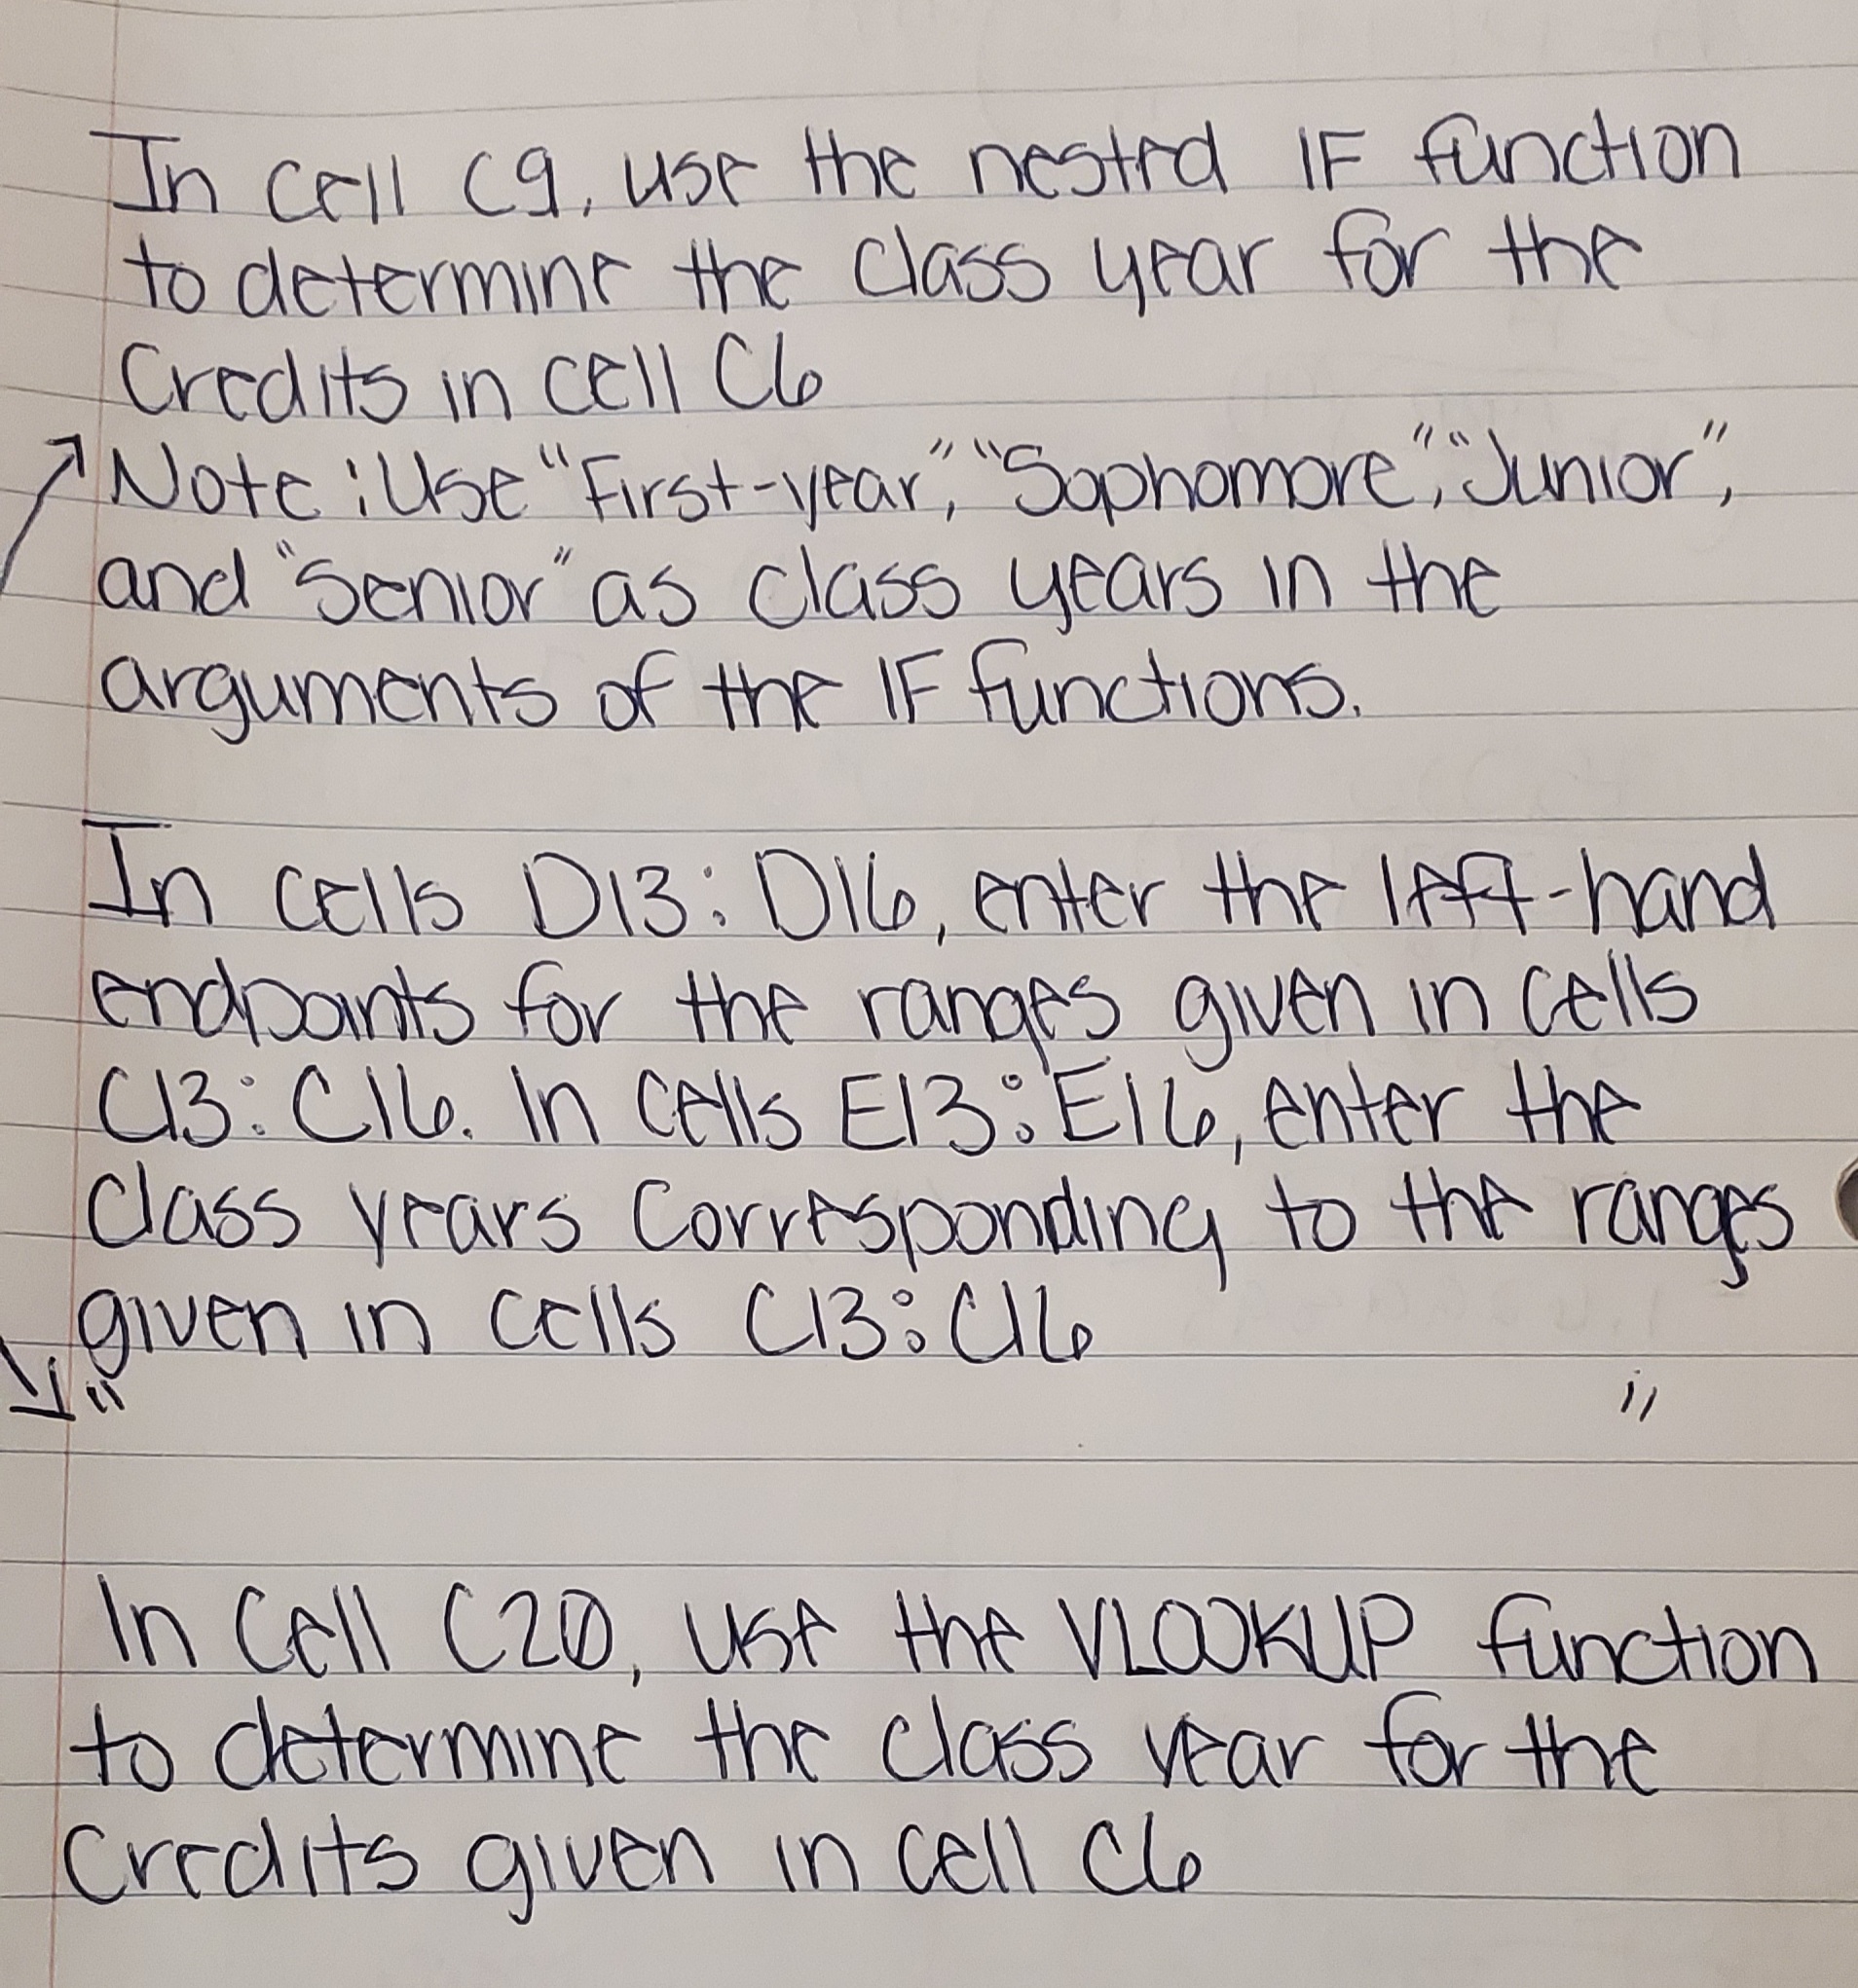 In cell C9, use the nested IF function
to determine the class year for the
Credits in cell C6
Note: Use "First-year", "Sophomore", "Junior",
and "Senior" as class years in the
arguments of the IF functions.
In cells D13:D16, enter the left-hand
endpoints for the ranges given in cells
C13:C16. In cells E13:E16, enter the
class years corresponding to the ranges
given in cells C13:C16
" "
In Cell C20, use the VLOOKUP function
to determine the class year for the
Credits given in cell C6